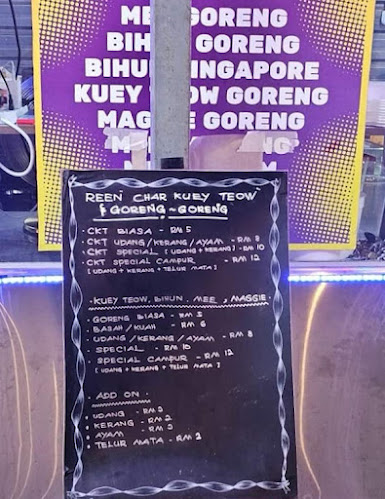 MEE GORENG
BIHUN GORENG
BIHUN SINGAPORE
KUEY TEOW GORENG
MAGGIE GORENG
REEN CHAR KUEY TEOW
& GORENG~GORENG
• CKT BIASA - RM 5
• CKT UDANG/KERANG/AYAM - RM 8
• CKT SPECIAL [UDANG + KERANG] - RM 10
• CKT SPECIAL CAMPUR - RM 12
[UDANG + KERANG + TELUR MATA]
• KUEY TEOW, BIHUN, MEE, MAGGIE
• GORENG BIASA - RM 5
• BASAH/KUAH - RM 6
• UDANG/KERANG/AYAM - RM 8
• SPECIAL - RM 10
• SPECIAL CAMPUR - RM 12
[UDANG + KERANG + TELUR MATA]
• ADD ON •
• UDANG - RM 3
• KERANG - RM 2
• AYAM - RM 3
• TELUR MATA - RM 2